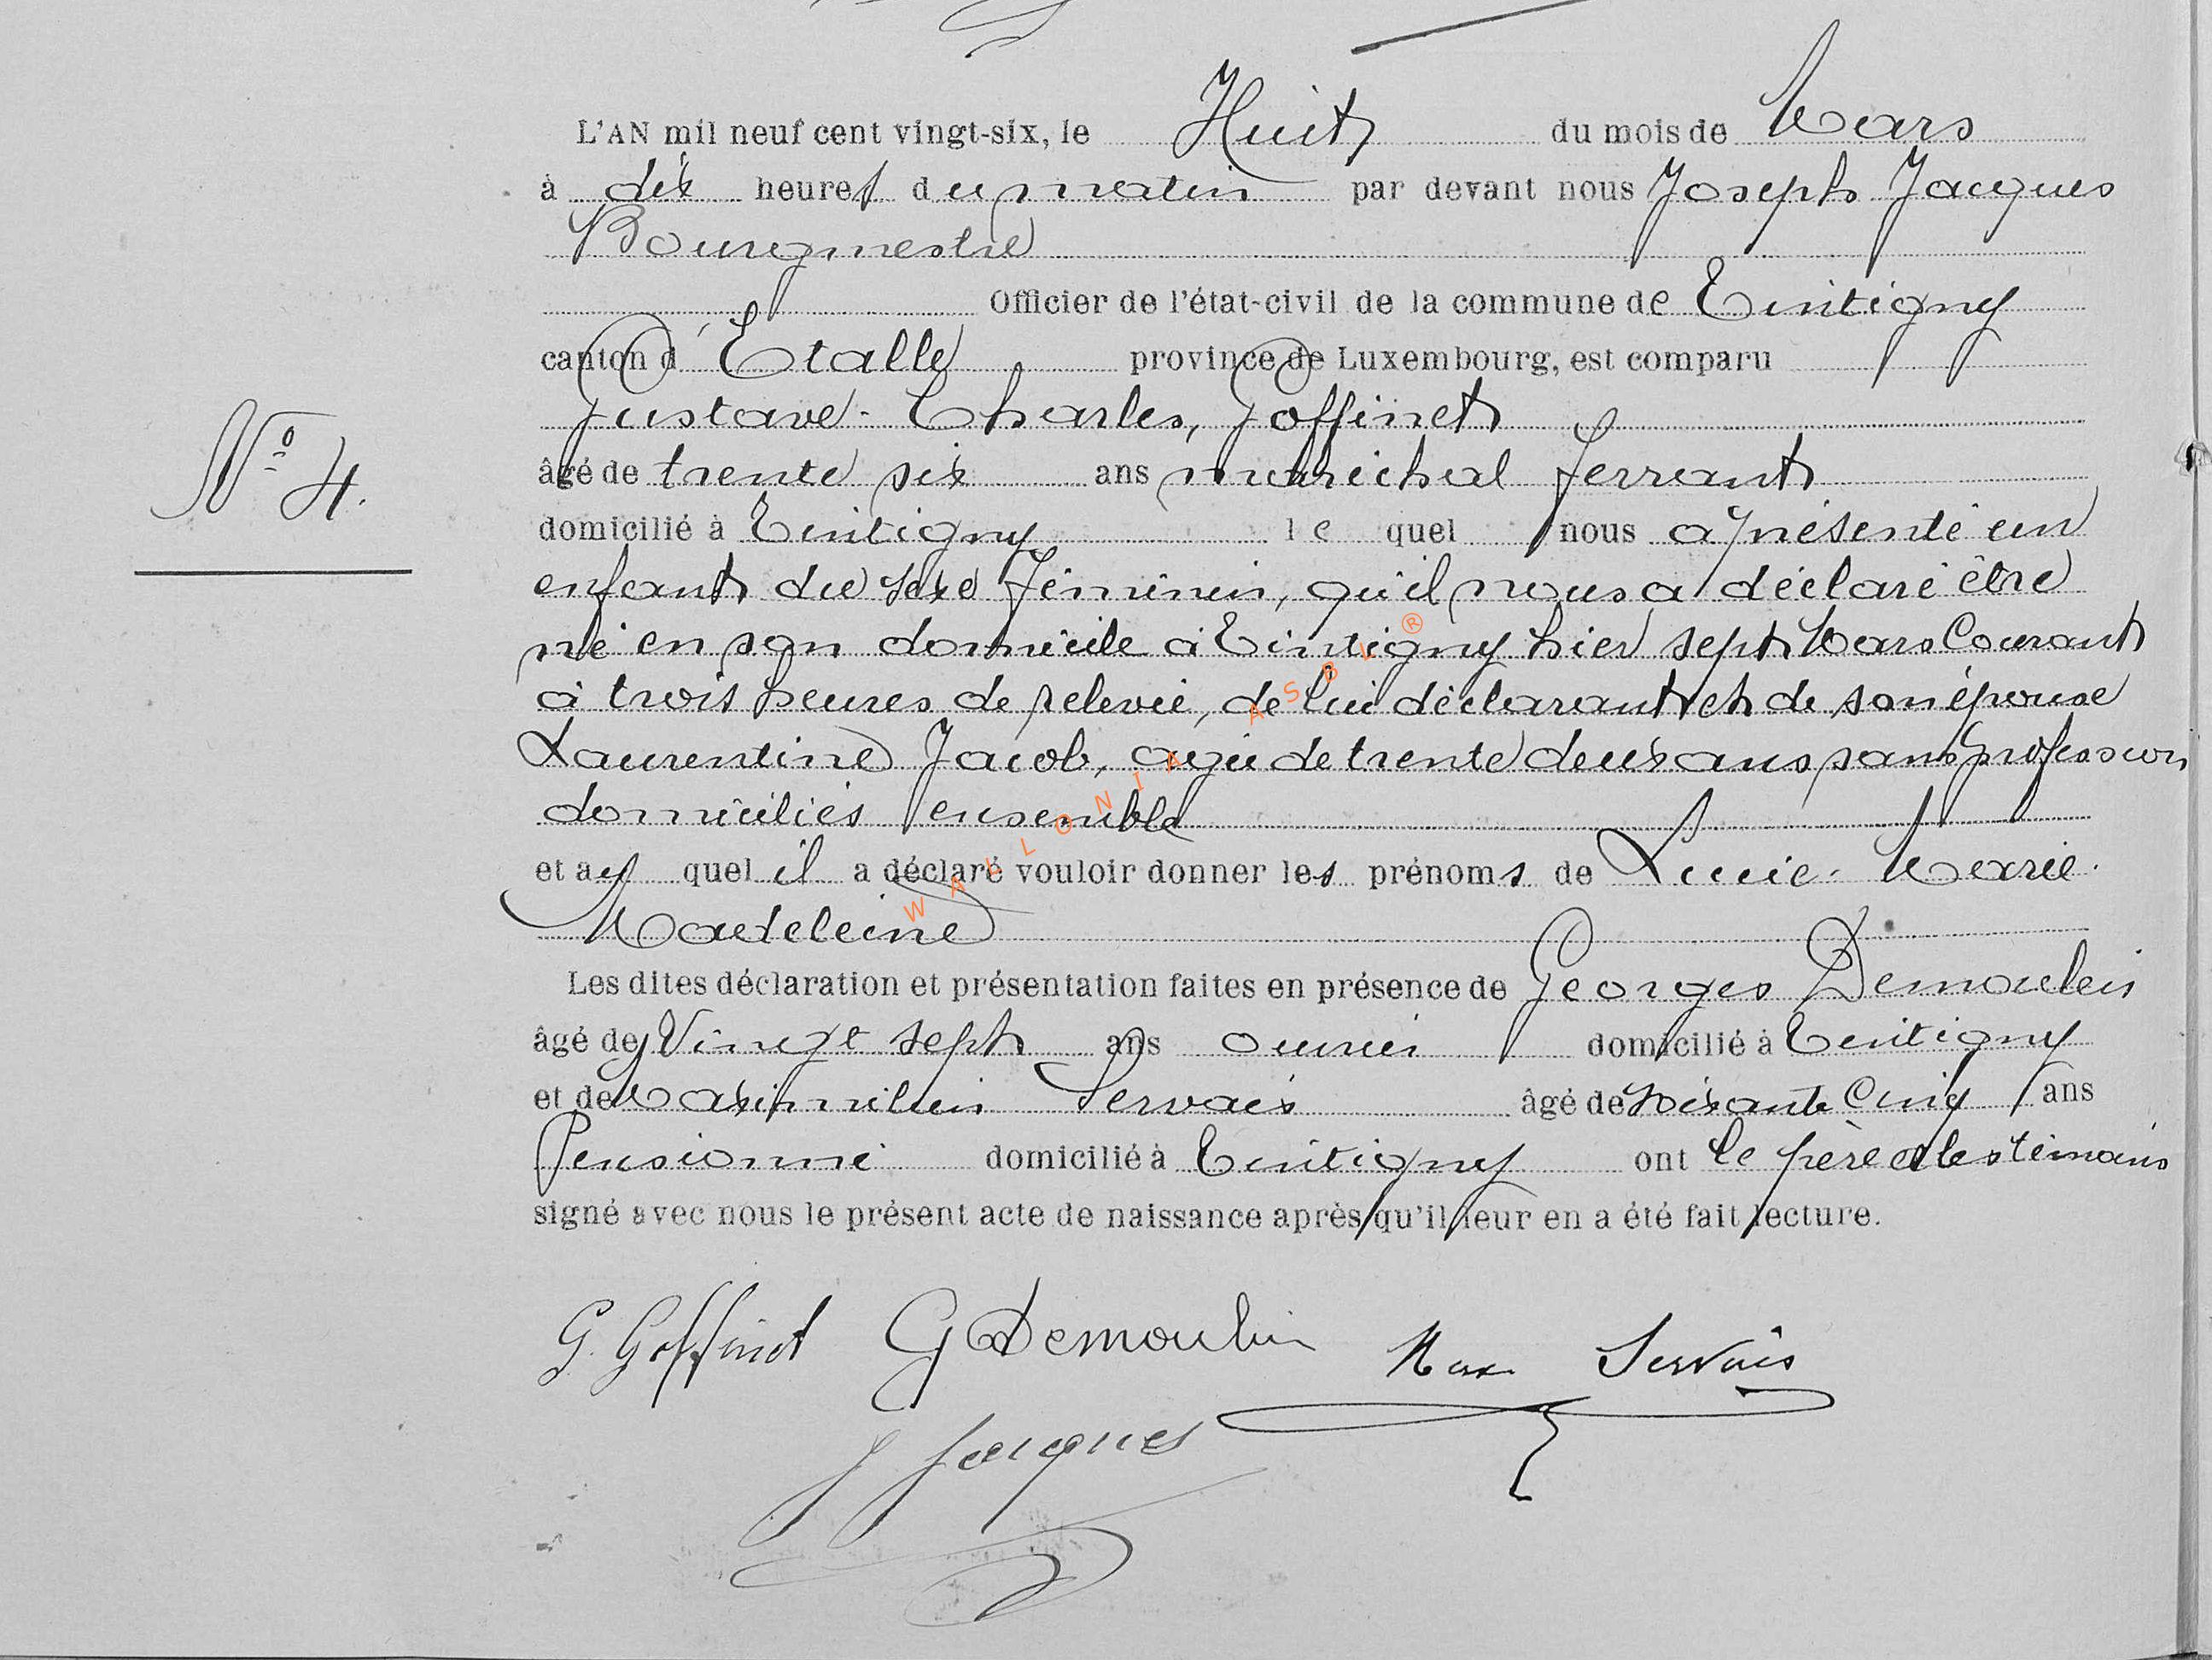 L'AN mil neuf cent vingt-six, le Huit du mois de Mars
à dix heures du matin par devant nous Joseph Jacques
Bourgmestre
Officier de l'état-civil de la commune de Tintigny
canton d'Etalle province de Luxembourg, est comparu
Gustave-Charles, Goffinet
N° 4.
âgé de trente six ans maréchal ferrant
domicilié à Tintigny le quel nous a présenté un
enfant du sexe féminin, qu'il nous a déclaré être
né en son domicile à Tintigny hier sept Mars Courant
à trois heures de relevée, de lui déclarant et de son épouse
Laurentine Jacob, agée de trente deux ans sans profession
domiciliés ensemble
et au quel il a déclaré vouloir donner les prénoms de Lucie-Marie-
Madeleine
Les dites déclaration et présentation faites en présence de Georges Demoulin
âgé de Vingt sept ans ouvrier domicilié à Tintigny
et de Maximilien Servais âgé de soixante Cinq ans
Pensionné domicilié à Tintigny ont le père et les témoins
signé avec nous le présent acte de naissance après qu'il leur en a été fait lecture.
G. Goffinet G Demoulin Max Servais
J Jacques
WALLONIA ASBL ®